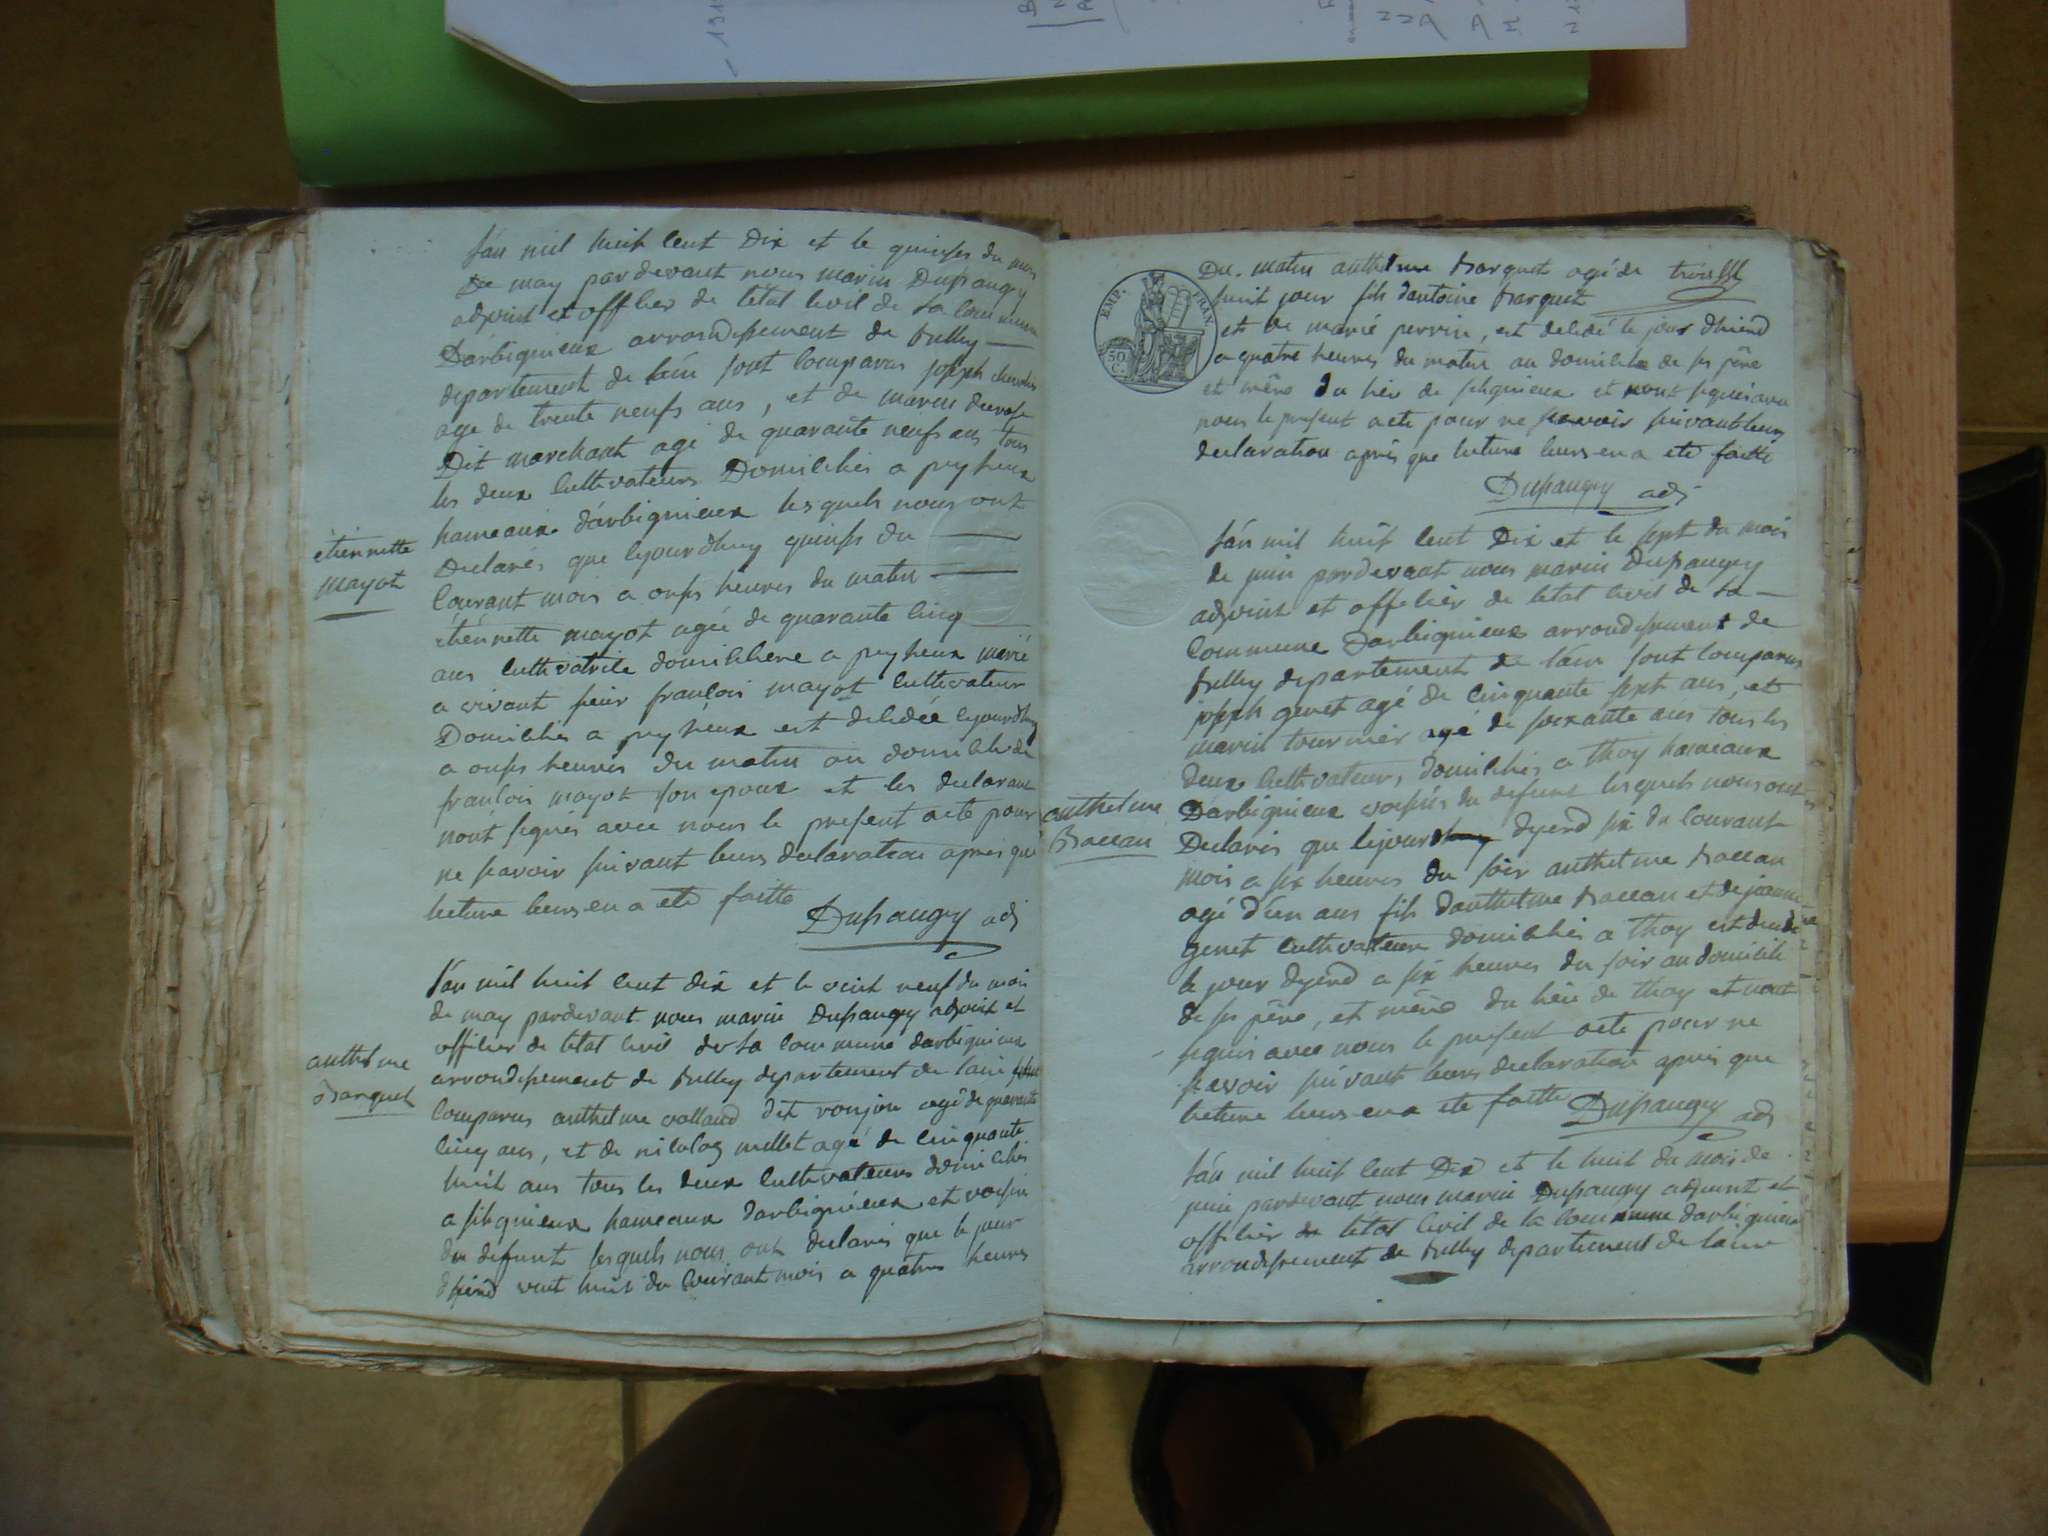 l'an mil huit cent Dix et le quinses du mois
De may pardevant nous marin Dupaugey
adjoint et officier de l'état civil de la commune
Darbigneux arrondisement de belley
departement de l'ain sont comparus joseph
age de trente neufs ans, et de marin
Dit marchant agé de quarante neufs ans tous
les deux cultivateurs Domicilies a peyzieux
hameaux d'arbignieux lesquels nous ont
Declarés que cejourdhuy quinses du
Courant mois a onses heures du matin
étiennette
mayot
étiennette mayot agée de quarante cinq
ans cultivatrice domiciliere a peyzieux marié
a vivant sieur francois mayot cultivateur
Domicilies a peyzieux est decedée cejourdhuy
a onses heures du matin au domicile de
francois mayot son epoux et les declarant
n'ont signés avec nous le present acte pour
ne scavoir suivant leurs declaration apres que
lecture leurs en a eté faitte
Dupaugey adj
l'an mil huit cent dix et le vint neuf du mois
de may pardevant nous marin Dupaugey adjoint et
officier de l'état civil de la commune darbignieux
anthelme
Barquet
arrondisement de belley departement de lain sont
comparus anthelme volland dit ronjon agé de quarante
cinq ans, et de nicolas millet agé de cinquante
huit ans tous les deux cultivateurs domicilies
a silignieux hameaux darbignieux et voisin
du defunt lesquels nous ont declarés que le jour
d'hierd vint huit du Courant mois a quatres heures
EMP. FRAN.
50 C.
Du matin anthelme barquet agé de trois
huit jour fils dantoine barquet
et de marie perrin, est decedé le jour dhierd
a quatre heures du matin au domicile de ses père
et mère du lieu de silignieux et n'ont signés avec
nous le present acte pour ne scavoir suivant leurs
declaration apres que lecture leurs en a eté faitte
Dupaugey adj
l'an mil huit cent Dix et le sept du mois
de juin pardevant nous marin Dupaugey
adjoint et officier de l'état civil de la
Commune Darbignieux arrondisement de
belley departement de l'ain sont comparus
joseph genet agé de cinquante sept ans, et
marin tournier agé de soixante ans tous les
deux cultivateurs domicilies a thoy hameaux
Darbignieux voisins du defunt lesquels nous ont
anthelme
Baccan
Declarés que cejourdhuy dyerd six du courant
mois a six heures du soir anthelme baccan
agé d'un ans fils danthelme baccan et de jeanne
genet cultivateurs domicilies a thoy est decedé
le jour dyerd a six heures du soir au domicile
de ses père, et mère du lieu de thoy et n'ont
signés avec nous le present acte pour ne
scavoir suivant leurs declaration apres que
lecture leurs en a eté faitte Dupaugey adj
l'an mil huit cent Dix et le huit du mois de
juin pardevant nous marin Dupaugey adjoint et
officier de l'état civil de la commune darbignieux
arrondisement de belley departement de lain